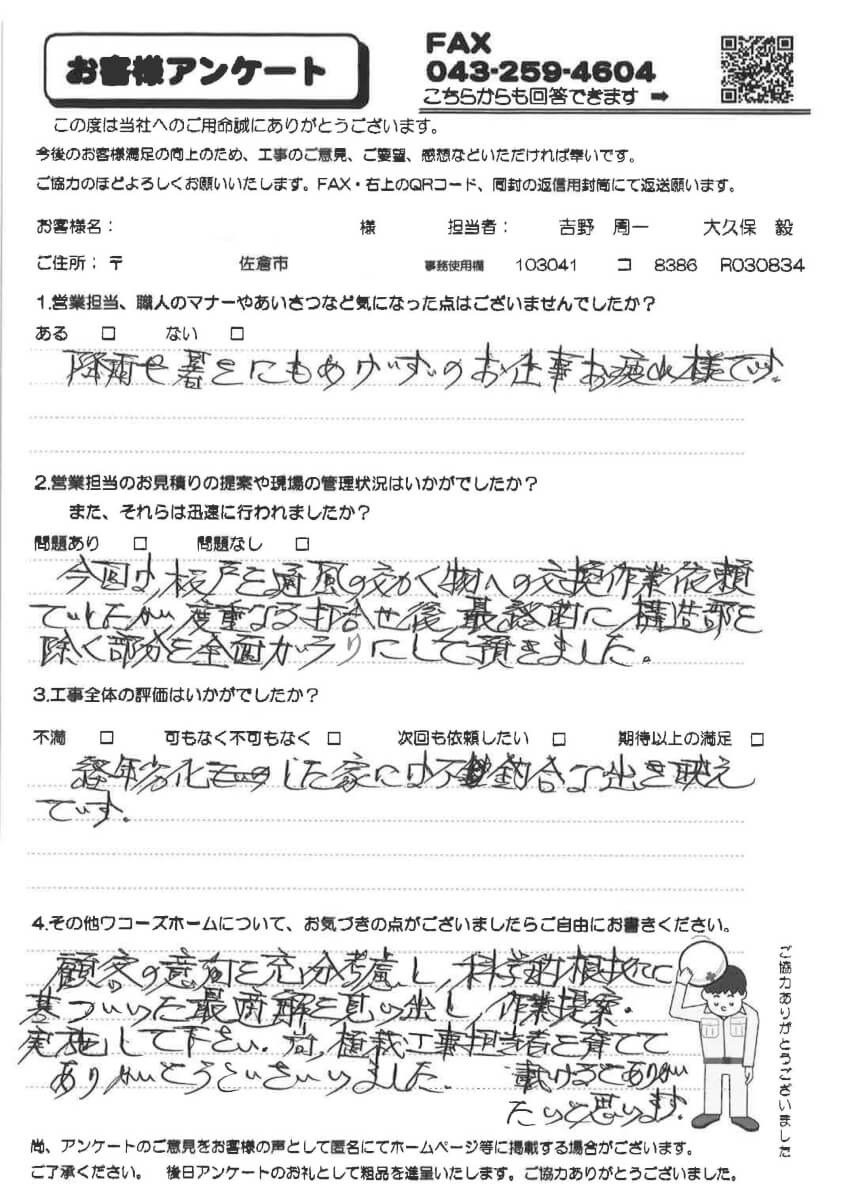 お客様アンケート
FAX
043-259-4604
こちらからも回答できます ➡
この度は当社へのご用命誠にありがとうございます。
今後のお客様満足の向上のため、工事のご意見、ご要望、感想などいただければ幸いです。
ご協力のほどよろしくお願いいたします。FAX・右上のQRコード、同封の返信用封筒にて返送願います。
お客様名： 様 担当者： 吉野 周一 大久保 毅
ご住所：〒 佐倉市 事務使用欄 103041 コ 8386 R030834
1.営業担当、職人のマナーやあいさつなど気になった点はございませんでしたか？
ある □ ない □
降雨や暑さにもめげずのお仕事お疲れ様です。
2.営業担当のお見積りの提案や現場の管理状況はいかがでしたか？
また、それらは迅速に行われましたか？
問題あり □ 問題なし □
今回は、板戸を通風の効く物への交換作業依頼
でしたが、度重なる打合せ後 最終的に構造部を
除く部分を全面ガラリにして頂きました。
3.工事全体の評価はいかがでしたか？
不満 □ 可もなく不可もなく □ 次回も依頼したい □ 期待以上の満足 □
経年劣化した家には不釣合な出き映え
です.
4.その他ワコーズホームについて、お気づきの点がございましたらご自由にお書きください。
顧客の意向を充分考慮し、科学的根拠に
基づいた最適解を見い出し、作業提案・
実施して下さい. 尚、植栽工事担当者を育てて
ありがとうございました. 戴けるとありが
たいと思います.
ご協力ありがとうございました
尚、アンケートのご意見をお客様の声として匿名にてホームページ等に掲載する場合がございます。
ご了承ください。 後日アンケートのお礼として粗品を進呈いたします。ご協力ありがとうございました。